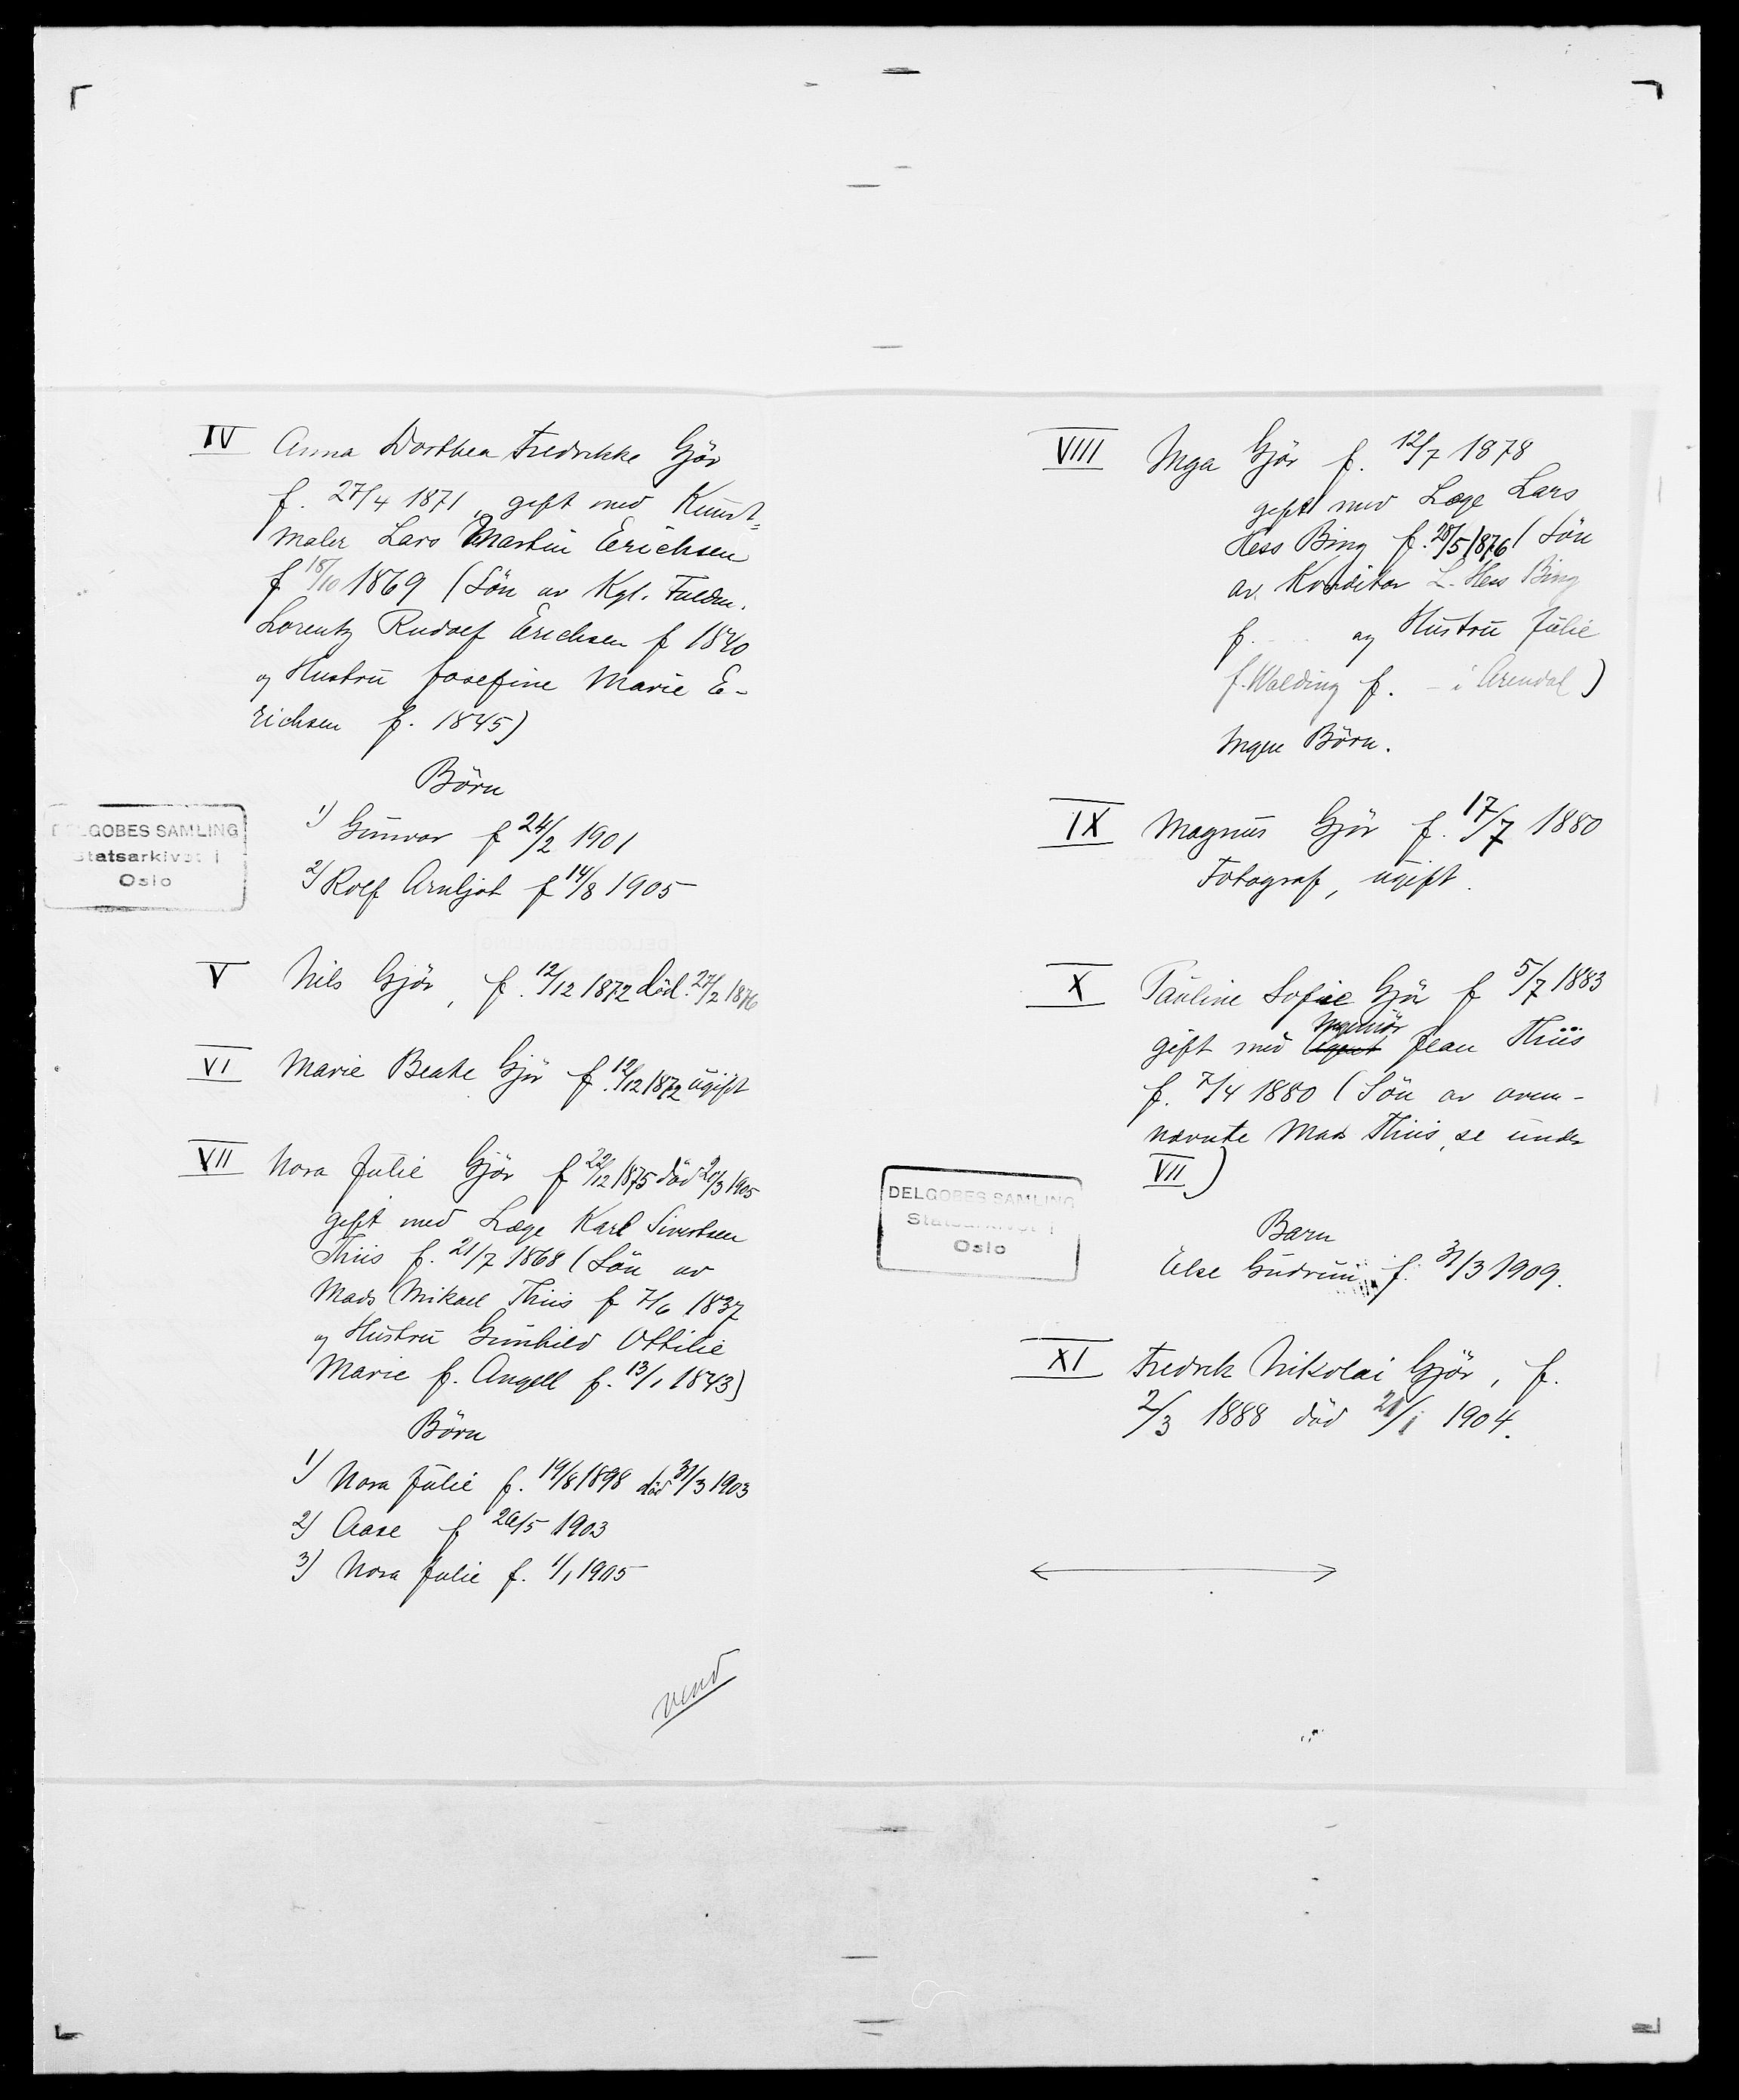 IV Anna Dorthea Fredrikke Gjör
f. 27/4 1871, gift med Kunst-
maler Lars Martin Erichsen
f 18/10 1869 (Sön av Kgl. Fuldm.
Lorentz Rudolf Erichsen f 1840
og Hustru Josefine Marie E-
richsen f. 1845)
Börn
1) Gunvor f 24/2 1901
2) Rolf Arnljot f 14/8 1905
DELGOBES SAMLING
Statsarkivet i
Oslo
V Nils Gjör, f. 12/12 1872 död. 27/2 1876
VI Marie Beate Gjör f. 12/12 1872 ugift
VII Nora Julie Gjör f 22/12 1875 död 20/3 1905
gift med Læge Karl Sivertsen
Thiis f. 21/7 1868 (Sön av
Mads Mikael Thiis f 7/6 1837
og Hustru Gunhild Ottilie
Marie f. Angell f. 13/1 1843)
Börn
1) Nora Julie f. 19/8 1898 död 31/3 1903
2) Aase f 26/5 1903
3) Nora Julie f. 1/1 1905
vend
VIII Inga Gjör f. 12/7 1878
gift med Læge Lars
Hess Bing f. 28/5 1876 (Sön
av Konditor L. Hess Bing
f. og Hustru Julie
f. Walding f. - i Arendal)
Ingen Börn.
IX Magnus Gjör f. 17/7 1880
Fotograf, ugift.
X Pauline Sofie Gjör f 5/7 1883
Ingeniör
gift med Agent Jean Thiis
f. 7/4 1880 (Sön av oven-
nævnte Mads Thiis, se under
VII)
DELGOBES SAMLING
Statsarkivet i
Oslo
Barn
Else Gudrun f. 31/3 1909.
XI Fredrik Nikolai Gjör, f.
2/3 1888 död 21/1 1904.